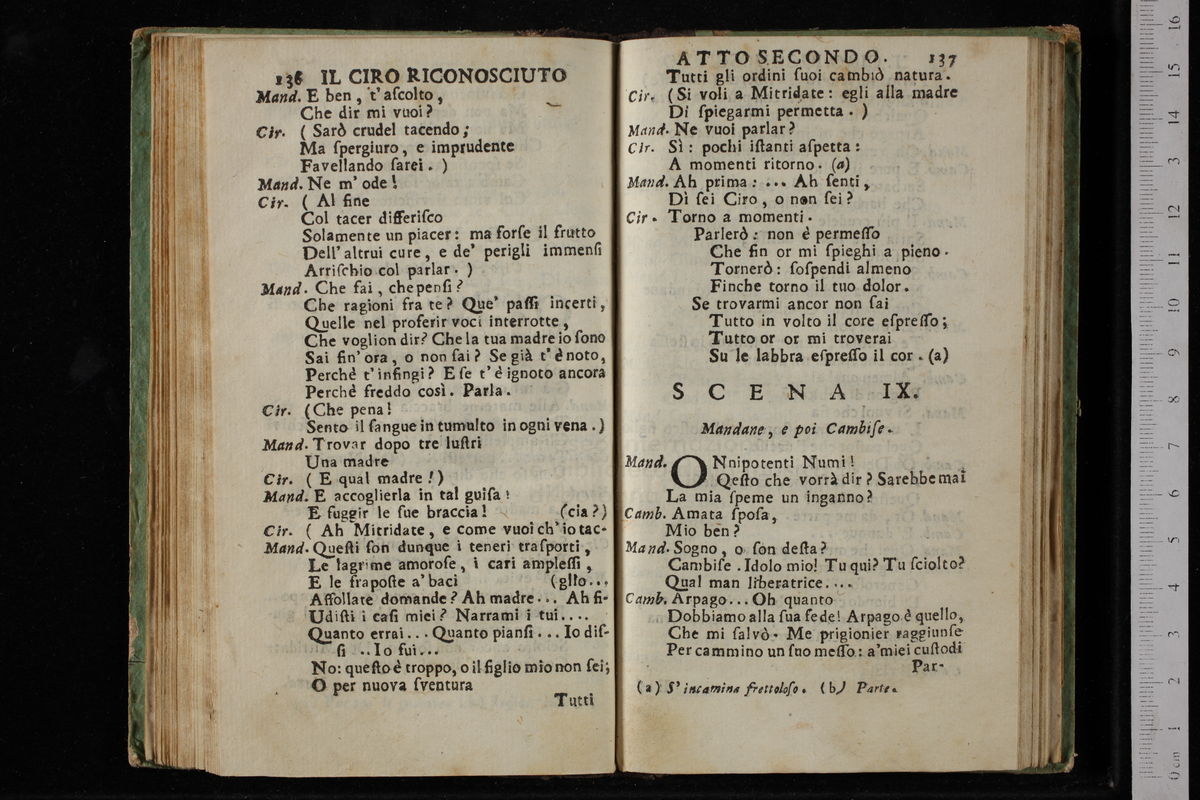 136 IL CIRO RICONOSCIUTO
Mand. E ben, t'aſcolto,
Che dir mi vuoi?
Cir. (Sarò crudel tacendo;
Ma ſpergiuro, e imprudente
Favellando ſarei.)
Mand. Ne m'ode!
Cir. (Al fine
Col tacer differiſco
Solamente un piacer: ma forſe il frutto
Dell'altrui cure, e de' perigli immenſi
Arriſchio col parlar.)
Mand. Che fai, che penſi?
Che ragioni fra te? Que' paſſi incerti,
Quelle nel proferir voci interrotte,
Che voglion dir? Che la tua madre io ſono
Sai fin'ora, o non ſai? Se già t'è noto,
Perchè t'infingi? E ſe t'è ignoto ancora
Perchè freddo così. Parla.
Cir. (Che pena!
Sento il ſangue in tumulto in ogni vena.)
Mand. Trovar dopo tre luſtri
Una madre
Cir. (E qual madre!)
Mand. E accoglierla in tal guiſa!
E fuggir le ſue braccia! (cia?)
Cir. (Ah Mitridate, e come vuoi ch'io tac-
Mand. Queſti ſon dunque i teneri traſporti,
Le lagrime amoroſe, i cari ampleſſi,
E le frapoſte a' baci (glio...
Affollate domande? Ah madre... Ah fi-
Udiſti i caſi miei? Narrami i tui....
Quanto errai... Quanto pianſi... Io diſ-
ſi ..Io fui...
No: queſto è troppo, o il figlio mio non ſei;
O per nuova ſventura
Tutti
ATTO SECONDO. 137
Tutti gli ordini ſuoi cambiò natura.
Cir. (Si voli a Mitridate: egli alla madre
Di ſpiegarmi permetta.)
Mand. Ne vuoi parlar?
Cir. Sì: pochi iſtanti aſpetta:
A momenti ritorno. (a)
Mand. Ah prima: ... Ah ſenti,
Dì ſei Ciro, o non ſei?
Cir. Torno a momenti.
Parlerò: non è permeſſo
Che fin or mi ſpieghi a pieno.
Tornerò: ſoſpendi almeno
Finche torno il tuo dolor.
Se trovarmi ancor non ſai
Tutto in volto il core eſpreſſo;
Tutto or or mi troverai
Su le labbra eſpreſſo il cor. (a)
SCENA IX.
Mandane, e poi Cambiſe.
Mand. ONnipotenti Numi!
Qeſto che vorrà dir? Sarebbe mai
La mia ſpeme un inganno?
Camb. Amata ſpoſa,
Mio ben?
Mand. Sogno, o ſon deſta?
Cambiſe. Idolo mio! Tu qui? Tu ſciolto?
Qual man liberatrice....
Camb. Arpago... Oh quanto
Dobbiamo alla ſua fede! Arpago è quello,
Che mi ſalvò. Me prigionier raggiunſe
Per cammino un ſuo meſſo: a' miei cuſtodi
Par-
(a) S'incamina frettoloſo. (b) Parte.
0 cm 1 2 3 4 5 6 7 8 9 10 11 12 13 14 15 16